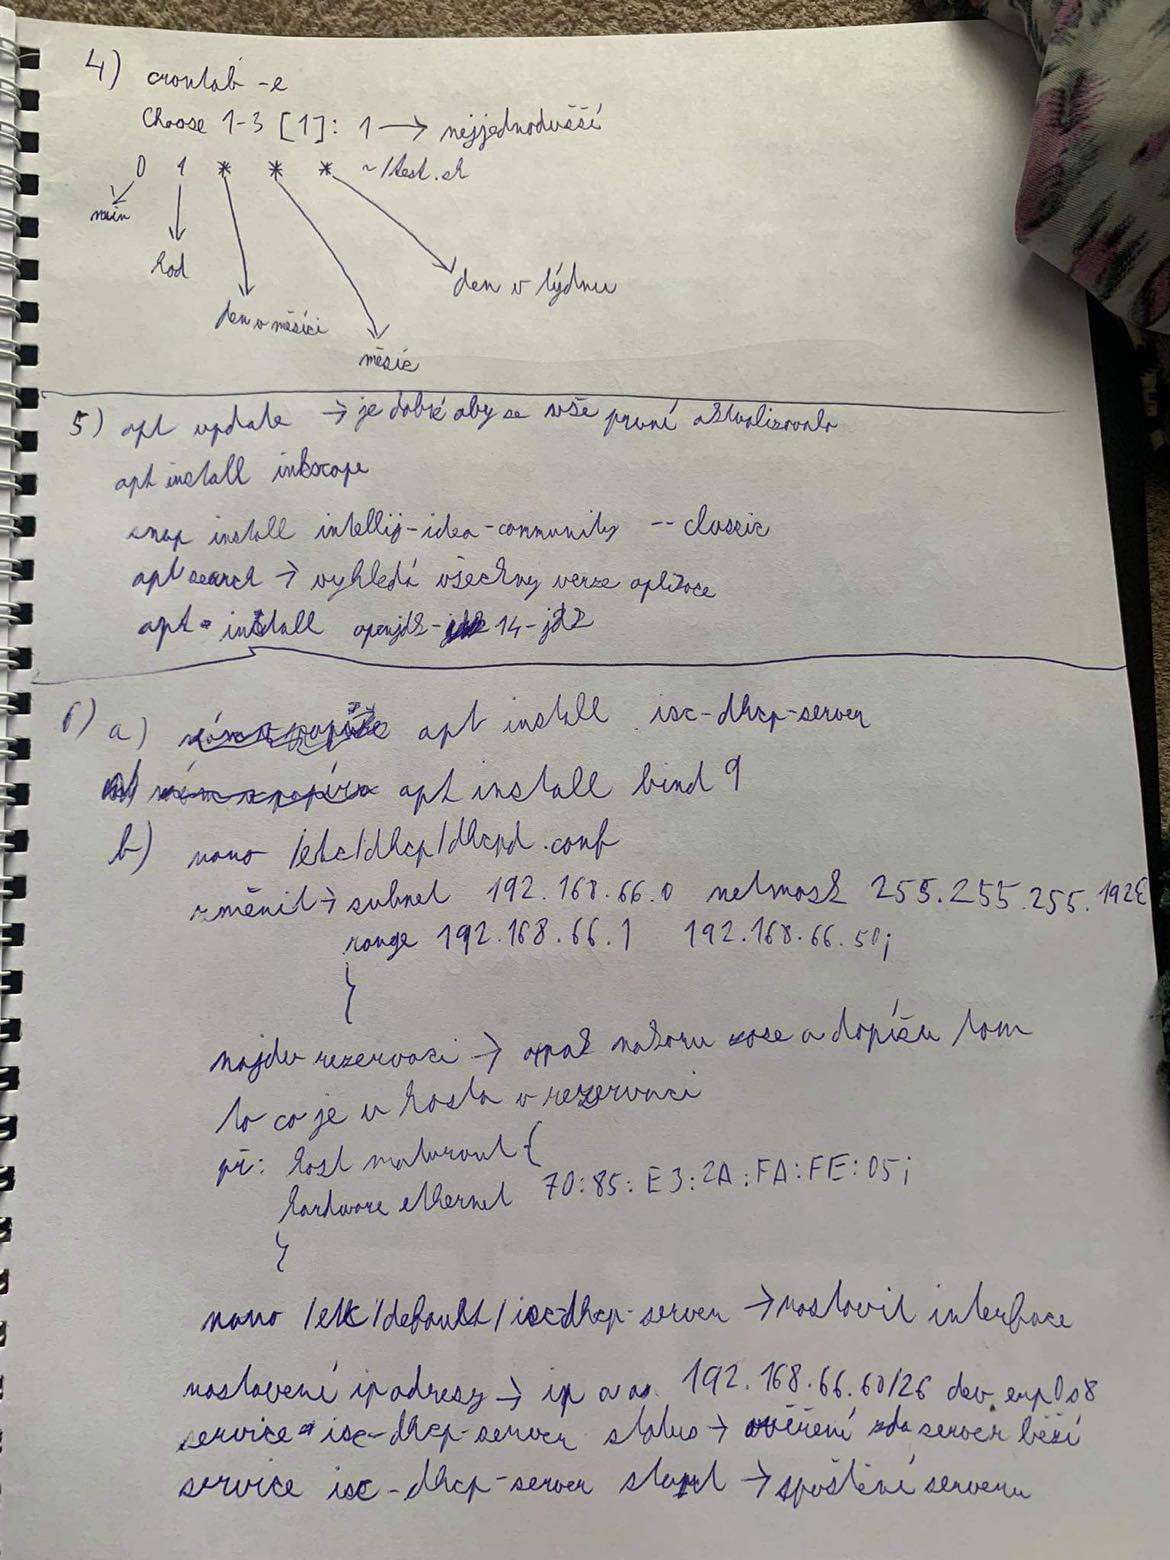 4) crontab -e
Choose 1-3 [1]: 1 → nejjednodušší
0 1 * * * ~/test.sh
min
hod
den v týdnu
den v měsíci
měsíc
5) apt update → je dobré aby se vše první aktualizovalo
apt install inkscape
snap install intellij-idea-community --classic
apt search → vyhledá všechny verze aplikace
apt install openjdk-14-jdk
6) a) apt install isc-dhcp-server
apt install bind9
b) nano /etc/dhcp/dhcpd.conf
změnit → subnet 192.168.66.0 netmask 255.255.255.192{
range 192.168.66.1 192.168.66.50;
}
najdu rezervaci → opak nahoru zase a dopíšu tam
to co je u hosta v rezervaci
př: host maturant {
hardware ethernet 70:85:E3:2A:FA:FE:05;
}
nano /etc/default/isc-dhcp-server → nastavit interface
nastavení ip adresy → ip a a 192.168.66.60/26 dev enp0s8
service isc-dhcp-server status → ověření zda server běží
service isc-dhcp-server start → spuštění serveru